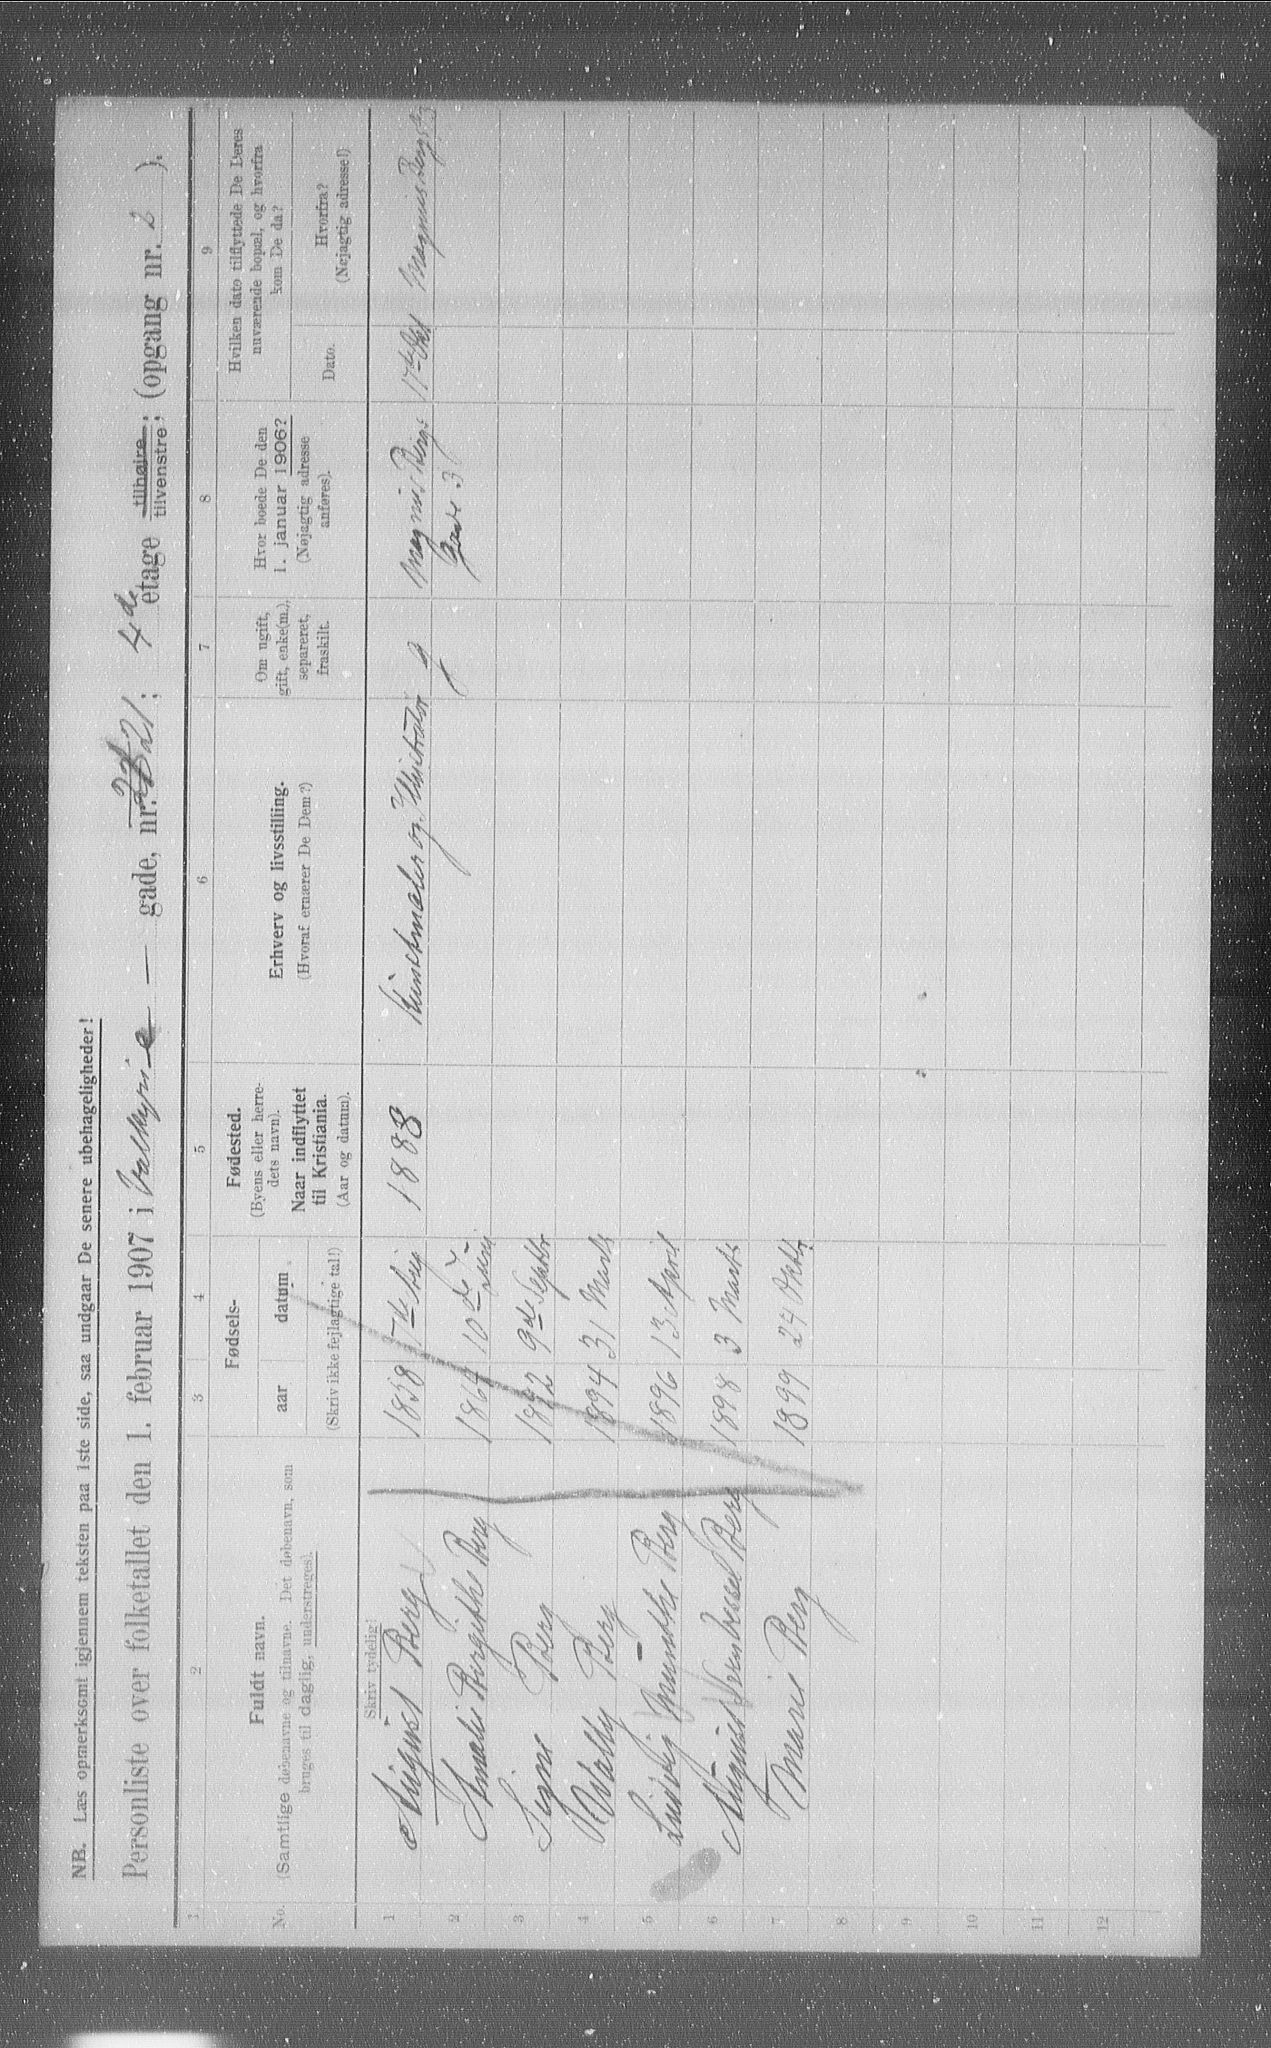 NB. Læs opmerksomt igjennem teksten paa 1ste side, saa undgaar De senere ubehageligheder!
Personliste over folketallet den 1. februar 1907 i Valkyrie — gade, nr. 21; 4de etage tilhøire; tilvenstre; (opgang nr. 2 ).
1 2 3 4 5 6 7 8 9
No.
Fuldt navn.
(Samtlige døbenavne og tilnavne. Det døbenavn, som
bruges til daglig, understreges).
Fødsels-
aar datum
(Skriv ikke fejlagtige tal!)
Fødested.
(Byens eller herre-
dets navn).
Naar indflyttet
til Kristiania.
(Aar og datum).
Erhverv og livsstilling.
(Hvoraf ernærer De Dem?)
Om ugift,
gift, enke(m.),
separeret,
fraskilt.
Hvor boede De den
1. januar 1906?
(Nøjagtig adresse
anføres).
Hvilken dato tilflyttede De Deres
nuværende bopæl, og hvorfra
kom De da?
Dato.
Hvorfra?
(Nøjagtig adresse!)
Skriv tydelig!
1 August Berg 1858 1888 Kunstmaler og Illustratør g Magnus Bergs 17de Okt Magnus Bergsg 3
Gade 3
2 Amalie Birgithe Berg 1864 10de Juni
3 Signe Berg 1892 9de Septbr
4 Wally Berg 1894 31 Marts
5 Ludvig Munthe Berg 1896 13 April
6 August Berg 1898 3 Marts
7 Marie Berg 1899 24 Oktb.
8
9
10
11
12